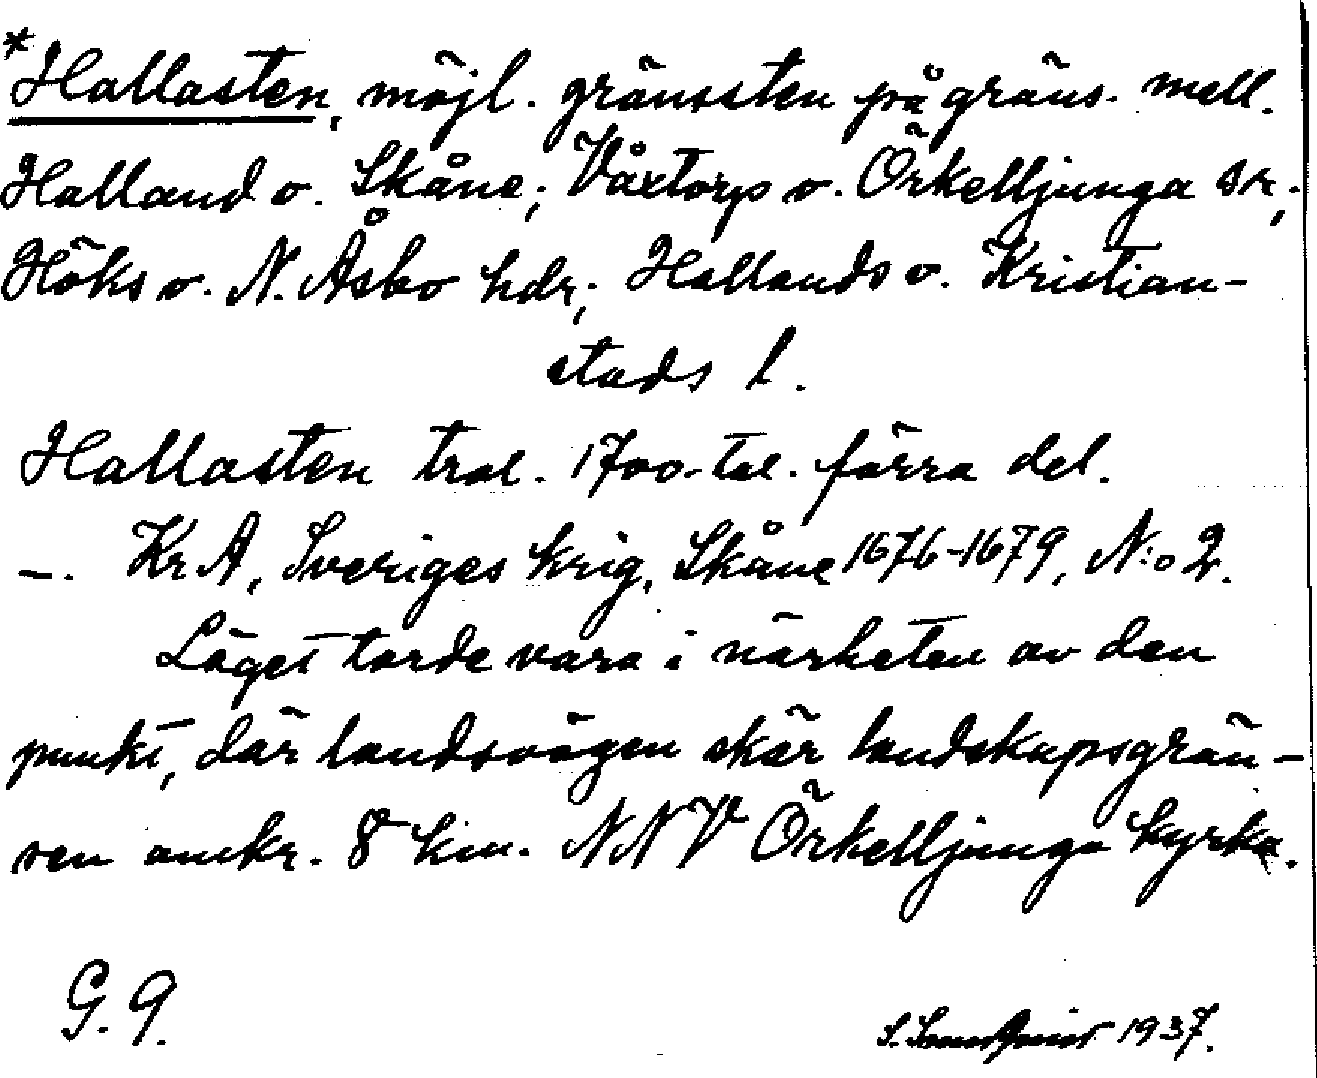 *Hallasten, möjl. gränssten på gräns. mell.
Halland o. Skåne; Våxtorp o. Örkelljunga sr;
Höks o. N. Åsbo hdr; Hallands o. Kristian-
stads l.
Hallasten trol. 1700-tal. förra del.
—. KrA, Sveriges krig, Skåne 1676-1679, N:o 2.
Läget torde vara i närheten av den
punkt, där landsvägen skär landskapsgrän-
sen omkr. 8 km. NNV Örkelljunga kyrka.
G. 9.
S. 1937.